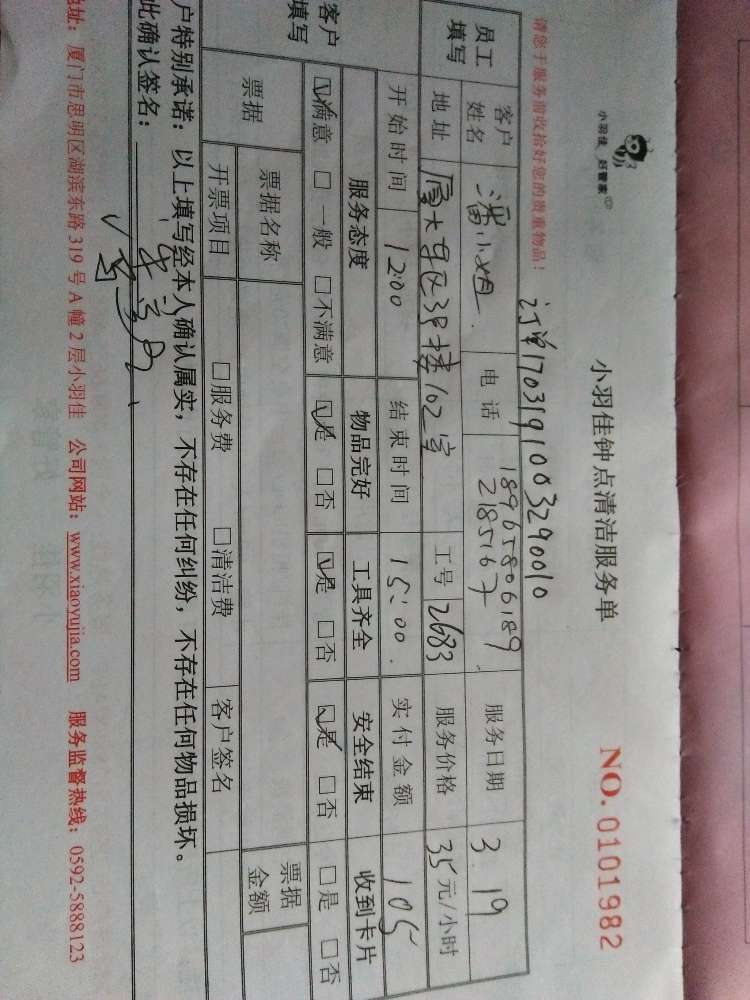 小羽佳 好管家
小羽佳钟点清洁服务单
NO.0101982
订单1703191003290010
请您于服务前收拾好您的贵重物品！
员工填写
客户姓名 潘小姐 电话 18965806189 2185167 服务日期 3.19
地址 厦大旱区39楼102室 工号 2683 服务价格 35元/小时
开始时间 12:00 结束时间 15:00. 实付金额 105
客户填写
服务态度 物品完好 工具齐全 安全结束 收到卡片
☑满意 □一般 □不满意 ☑是 □否 ☑是 □否 ☑是 □否 □是 □否
票据 票据名称 票据金额
开票项目 □服务费 □清洁费 客户签名
户特别承诺：以上填写经本人确认属实，不存在任何纠纷，不存在任何物品损坏。
此确认签名：
地址：厦门市思明区湖滨东路319号A幢2层小羽佳 公司网站：www.xiaoyujia.com 服务监督热线：0592-5888123